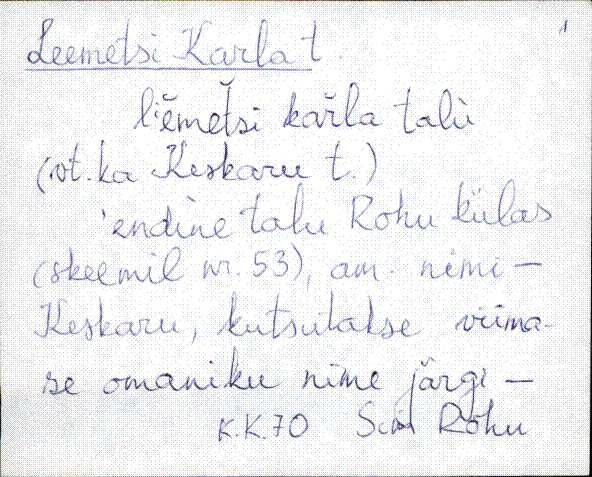 1
Leemetsi Karla t.
li̬ĕmĕtsi kařla talù
(vt. ka Keskaru t.)
'endine talu Rohu külas
(skeemil nr. 53), am. nimi –
Keskaru, kutsutakse viima-
se omaniku nime järgi –
K.K.70 Rohu